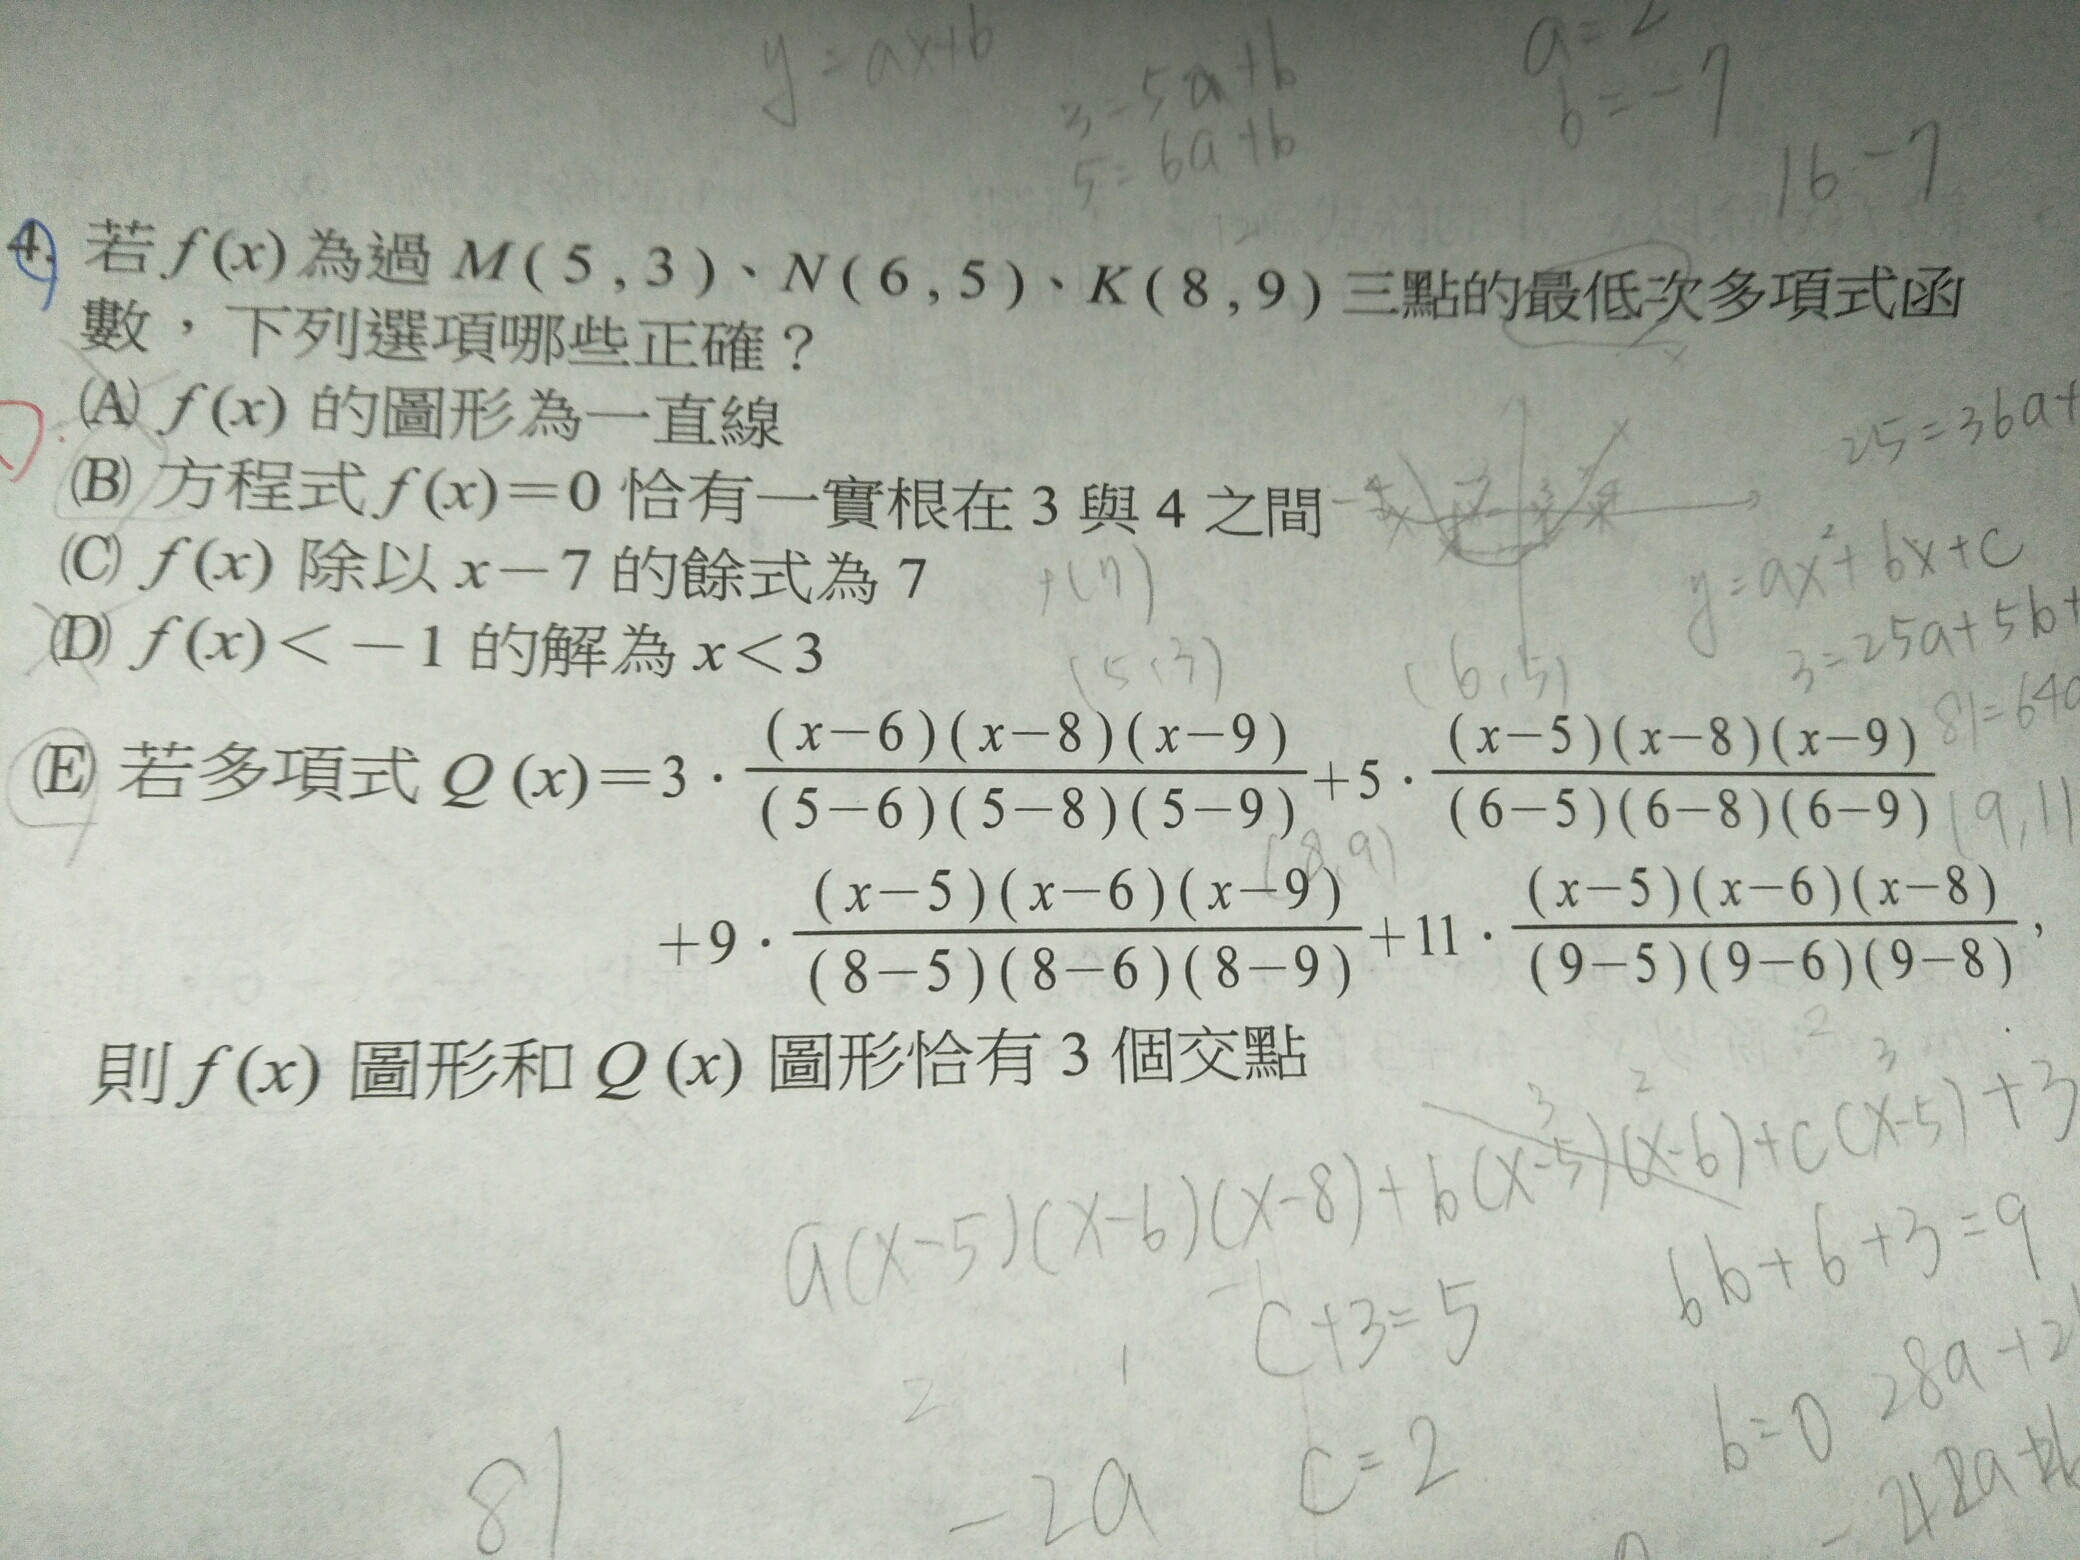 y=ax+b
3=5a+b
5=6a+b
a=2
b=-7
16-7
4. 若 f(x) 為過 M(5,3)、N(6,5)、K(8,9) 三點的最低次多項式函
數，下列選項哪些正確？
(A) f(x) 的圖形為一直線
(B) 方程式 f(x)=0 恰有一實根在 3 與 4 之間
25=36a+
(C) f(x) 除以 x-7 的餘式為 7
y=ax²+bx+c
(D) f(x)<-1 的解為 x<3
3=25a+5b+
(5,3)
(6,5)
81=64a
(E) 若多項式 Q(x)=3·(x-6)(x-8)(x-9)/(5-6)(5-8)(5-9)+5·(x-5)(x-8)(x-9)/(6-5)(6-8)(6-9)
(8,9)
(9,11
+9·(x-5)(x-6)(x-9)/(8-5)(8-6)(8-9)+11·(x-5)(x-6)(x-8)/(9-5)(9-6)(9-8)，
則 f(x) 圖形和 Q(x) 圖形恰有 3 個交點
a(x-5)(x-6)(x-8)+b(x-5)(x-6)+c(x-5)+3
c+3=5
6b+6+3=9
c=2
b=0
28a+2
81
-2a